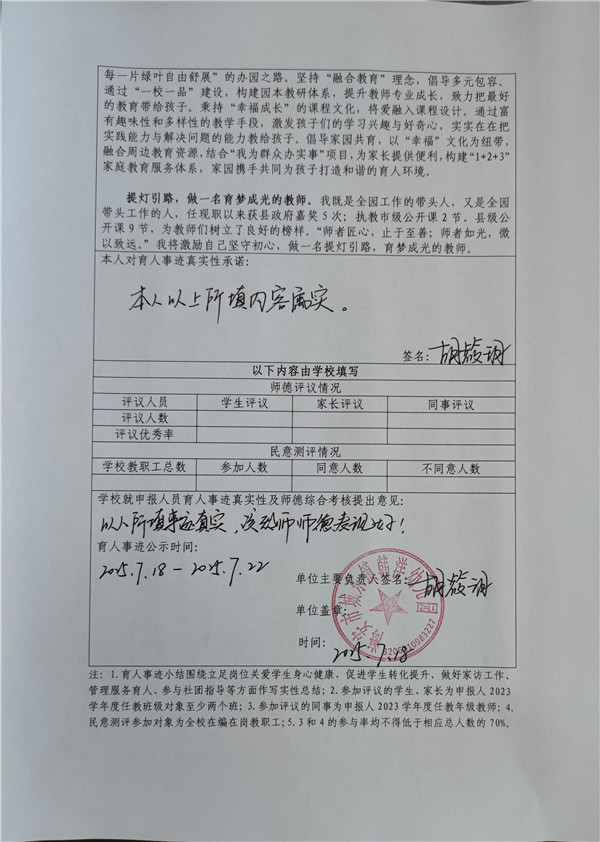 每一片绿叶自由舒展”的办园之路。坚持“融合教育”理念，倡导多元包容。
通过“一校一品”建设，构建园本教研体系，提升教师专业成长，致力把最好
的教育带给孩子。秉持“幸福成长”的课程文化，将爱融入课程设计。通过富
有趣味性和多样性的教学手段，激发孩子们的学习兴趣与好奇心，实实在在把
实践能力与解决问题的能力教给孩子。倡导家园共育，以“幸福”文化为纽带，
融合周边教育资源，结合“我为群众办实事”项目，为家长提供便利，构建“1+2+3”
家庭教育服务体系，家园携手共同为孩子打造和谐的育人环境。
提灯引路，做一名育梦成光的教师。我既是全园工作的带头人，又是全园
带头工作的人，任现职以来获县政府嘉奖 5 次；执教市级公开课 2 节、县级公
开课 9 节，为教师们树立了良好的榜样。“师者匠心，止于至善；师者如光，微
以致远。”我将激励自己坚守初心，做一名提灯引路，育梦成光的教师。
本人对育人事迹真实性承诺：
本人以上所填内容属实。
签名：胡
以下内容由学校填写
师德评议情况
评议人员 学生评议 家长评议 同事评议
评议人数
评议优秀率
民意测评情况
学校教职工总数 参加人数 同意人数 不同意人数
学校就申报人员育人事迹真实性及师德综合考核提出意见：
以上所填事迹真实，该教师师德表现好！
育人事迹公示时间：
2025.7.18－2025.7.22
单位主要负责人签名：胡
单位盖章：
海安市城东镇韩洋幼儿园
时间：2025.7.18
注：1.育人事迹小结围绕立足岗位关爱学生身心健康、促进学生转化提升、做好家访工作、
管理服务育人、参与社团指导等方面作写实性总结；2.参加评议的学生、家长为申报人 2023
学年度任教班级对象至少两个班；3.参加评议的同事为申报人 2023 学年度任教年级教师；4.
民意测评参加对象为全校在编在岗教职工；5.3 和 4 的参与率均不得低于相应总人数的 70%。